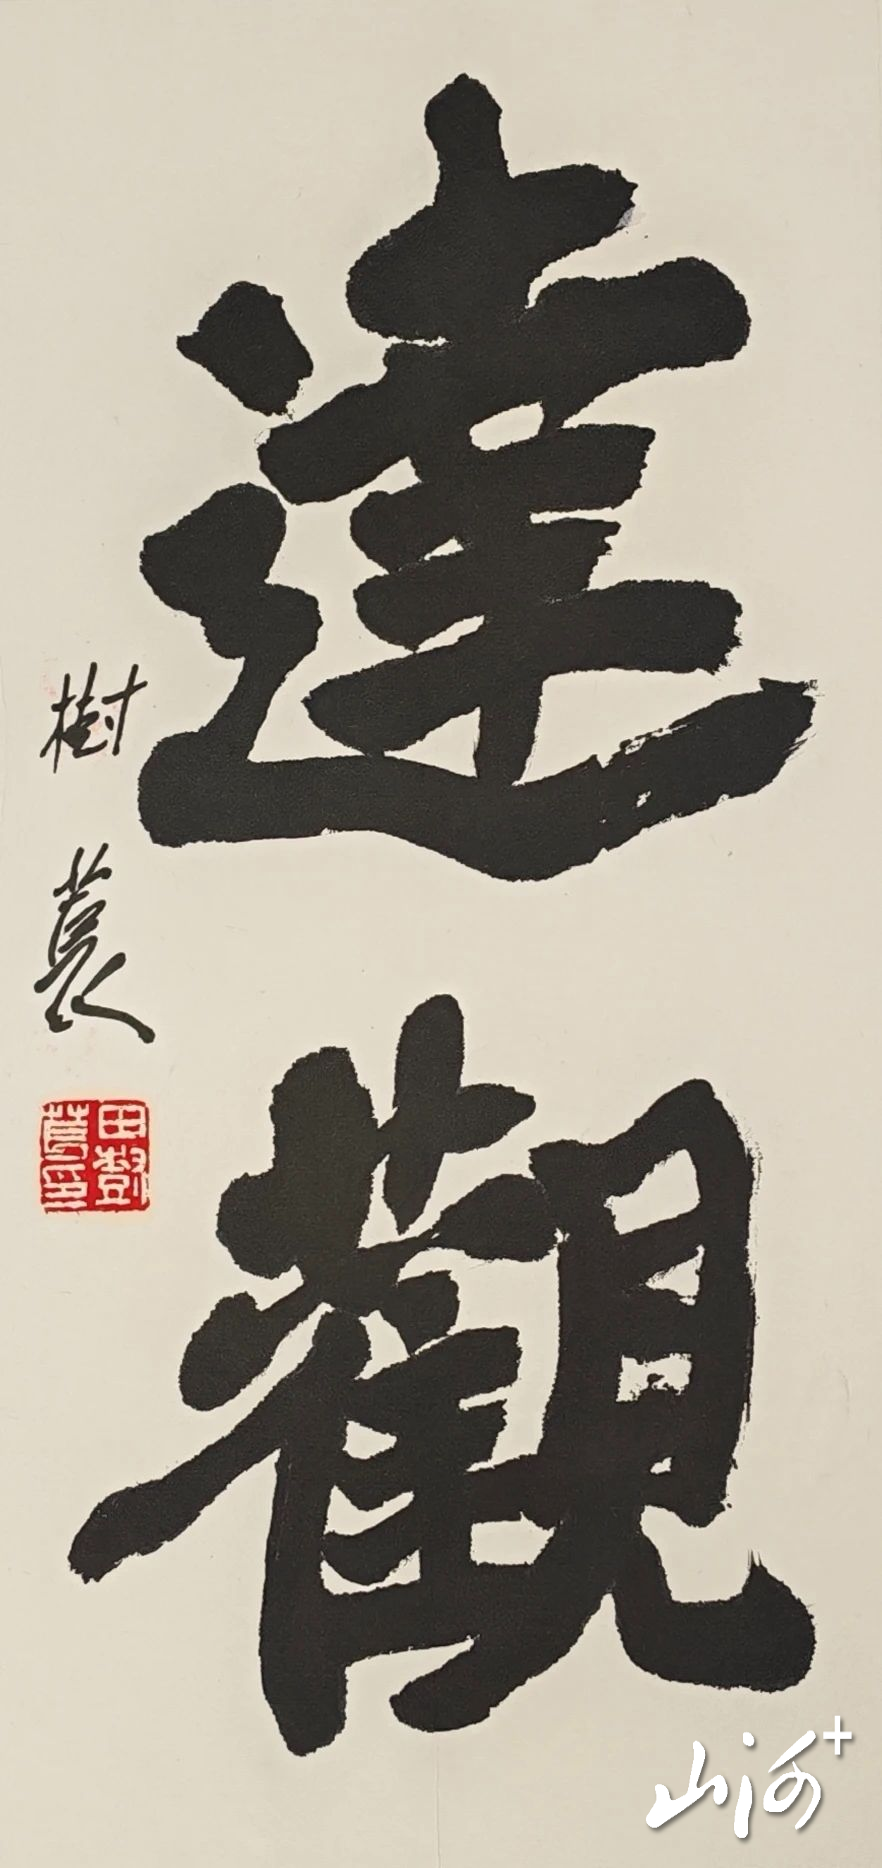 達觀
樹萇
田樹萇印
山河+